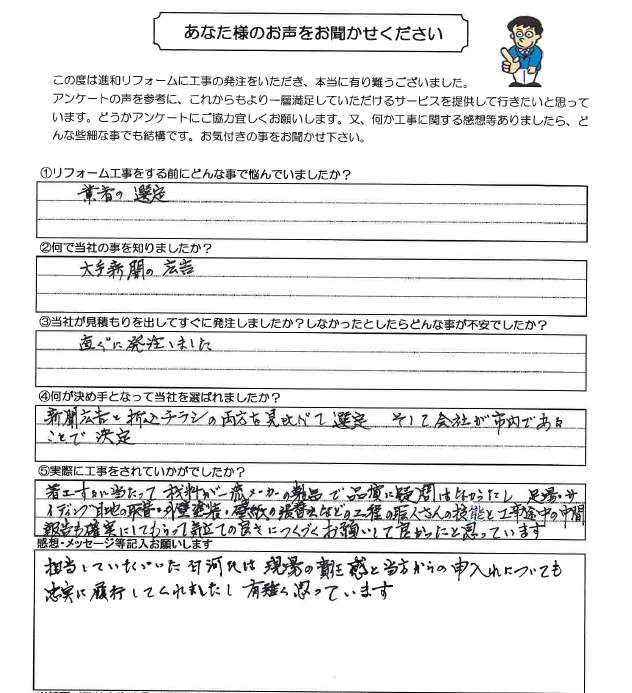 あなた様のお声をお聞かせください
この度は進和リフォームに工事の発注をいただき、本当に有り難うございました。
アンケートの声を参考に、これからもより一層満足していただけるサービスを提供して行きたいと思って
います。どうかアンケートにご協力宜しくお願いします。又、何か工事に関する感想等ありましたら、ど
んな些細な事でも結構です。お気付きの事をお聞かせ下さい。
①リフォーム工事をする前にどんな事で悩んでいましたか？
業者の選定
②何で当社の事を知りましたか？
大手新聞の広告
③当社が見積もりを出してすぐに発注しましたか？しなかったとしたらどんな事が不安でしたか？
直ぐに発注しました
④何が決め手となって当社を選ばれましたか？
新聞広告と折込チラシの両方を見比べて選定 そして会社が市内である
ことで決定
⑤実際に工事をされていかがでしたか？
着工するに当たって材料が一流メーカーの製品で品質に疑問はなかったし 足場・サ
イディング目地の取替・外壁塗装・壁紙の張替えなどの工程の職人さんの技能と工事途中の中間
報告も確実にしてもらって気立ての良さにつくづくお願いして良かったと思っています
感想・メッセージ等記入お願いします
担当していただいた 河氏は現場の責任感と当方からの申入れについても
忠実に履行してくれましたし有難く思っています